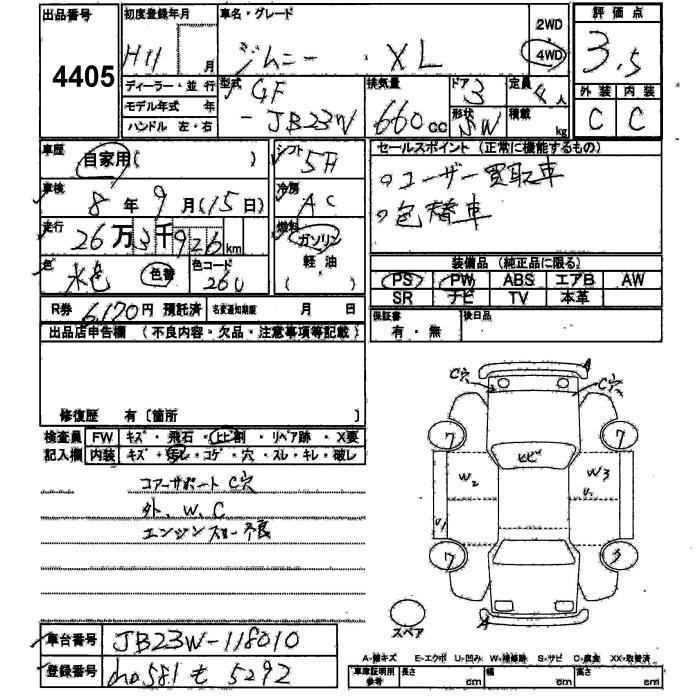 出品番号
4405
初度登録年月
H11 月
車名・グレード
ジムニー・XL
2WD
4WD
評価点
3.5
外装 内装
C C
ディーラー・並行
モデル年式 年
ハンドル 左・右
型式
GF
-JB23W
排気量
660cc
ドア
3
形状
SW
定員
4人
積載
kg
車歴
自家用( )
シフト
5F
車検
8年9月(15日)
冷房
AC
走行
26万3千926km
燃料
ガソリン
軽油
( )
色
水色 色替
色コード
26U
R券 6,170円 預託済 名変通知期限 月 日
セールスポイント(正常に機能するもの)
。ユーザー買取車
。色替車
装備品(純正品に限る)
PS PW ABS エアB AW
SR ナビ TV 本革
保証書
有・無
後日品
出品店申告欄(不良内容・欠品・注意事項等記載)
修復歴 有〔箇所 〕
検査員
記入欄
FW キズ・飛石・ヒビ割・リペア跡・X要
内装 キズ・汚レ・コゲ・穴・スレ・キレ・破レ
コアーサポート C穴
外、W、C
エンジンスロー不良
C穴
A
C穴
7
7
ヒビ
W2
W3
U1
U2
7
3
A
スペア
車台番号 JB23W-118010
登録番号 581 も 5292
A-擦キズ E-エクボ U-凹み W-補修跡 S-サビ C-腐食 XX-取替済
車庫証明用
参考
長さ cm
幅 cm
高さ cm